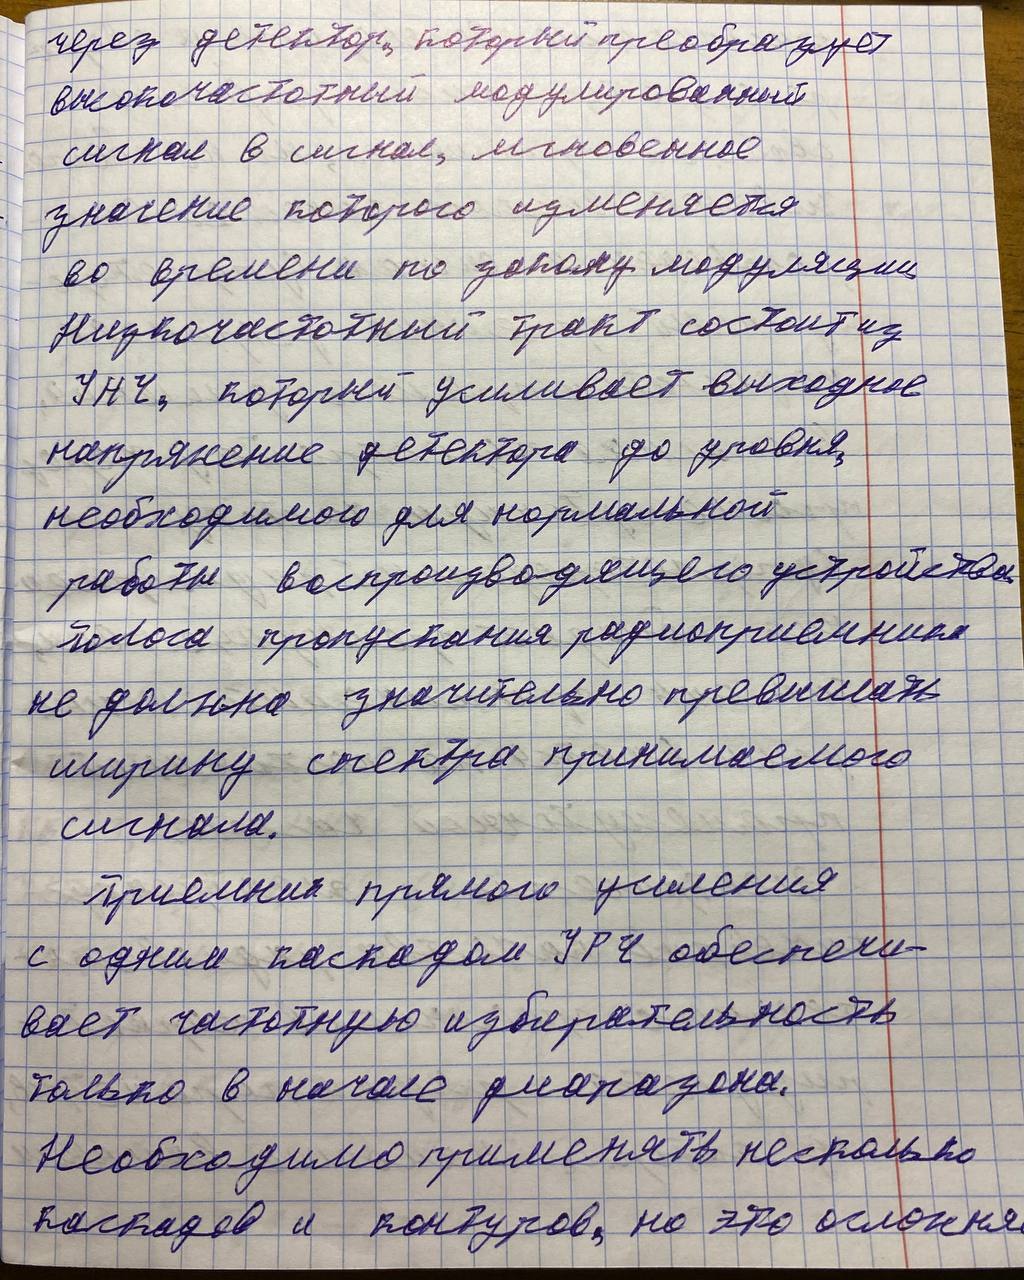 через детектор, который преобразует
высокочастотный модулированный
сигнал в сигнал, мгновенное
значение которого изменяется
во времени по закону модуляции
Низкочастотный тракт состоит из
УНЧ, который усиливает выходное
напряжение детектора до уровня,
необходимого для нормальной
работы воспроизводящего устройства
полоса пропускания радиоприемника
не должна значительно превышать
ширину спектра принимаемого
сигнала.
Приемник прямого усиления
с одним каскадом УРЧ обеспечи-
вает частотную избирательность
только в начале диапазона.
Необходимо применять несколько
каскадов и контуров, но это осложня